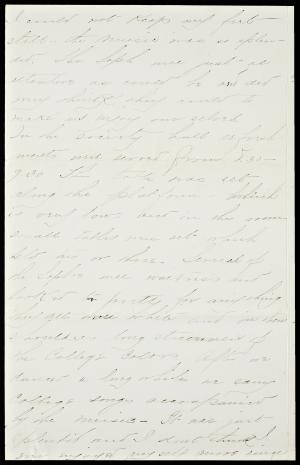 I could not keep my feet
still - the music was so splen-
did. The Soph. were just as
attentive as could be and did
everything they could to
make us enjoy ourselves.
In the Society hall refresh-
ments were served from 8.30 -
9.30 The table was set
along the platform - which
is very low and in the room
small tables were set which
held six or three. Several of
the Sophs were waitresses and
looked so pretty, for anything
they all wore white and in their
long streamers of
the College colors. After we
danced a long while we sang
College songs accompanied
by the music - It was just
splendid and I don't think I
ever enjoyed myself more